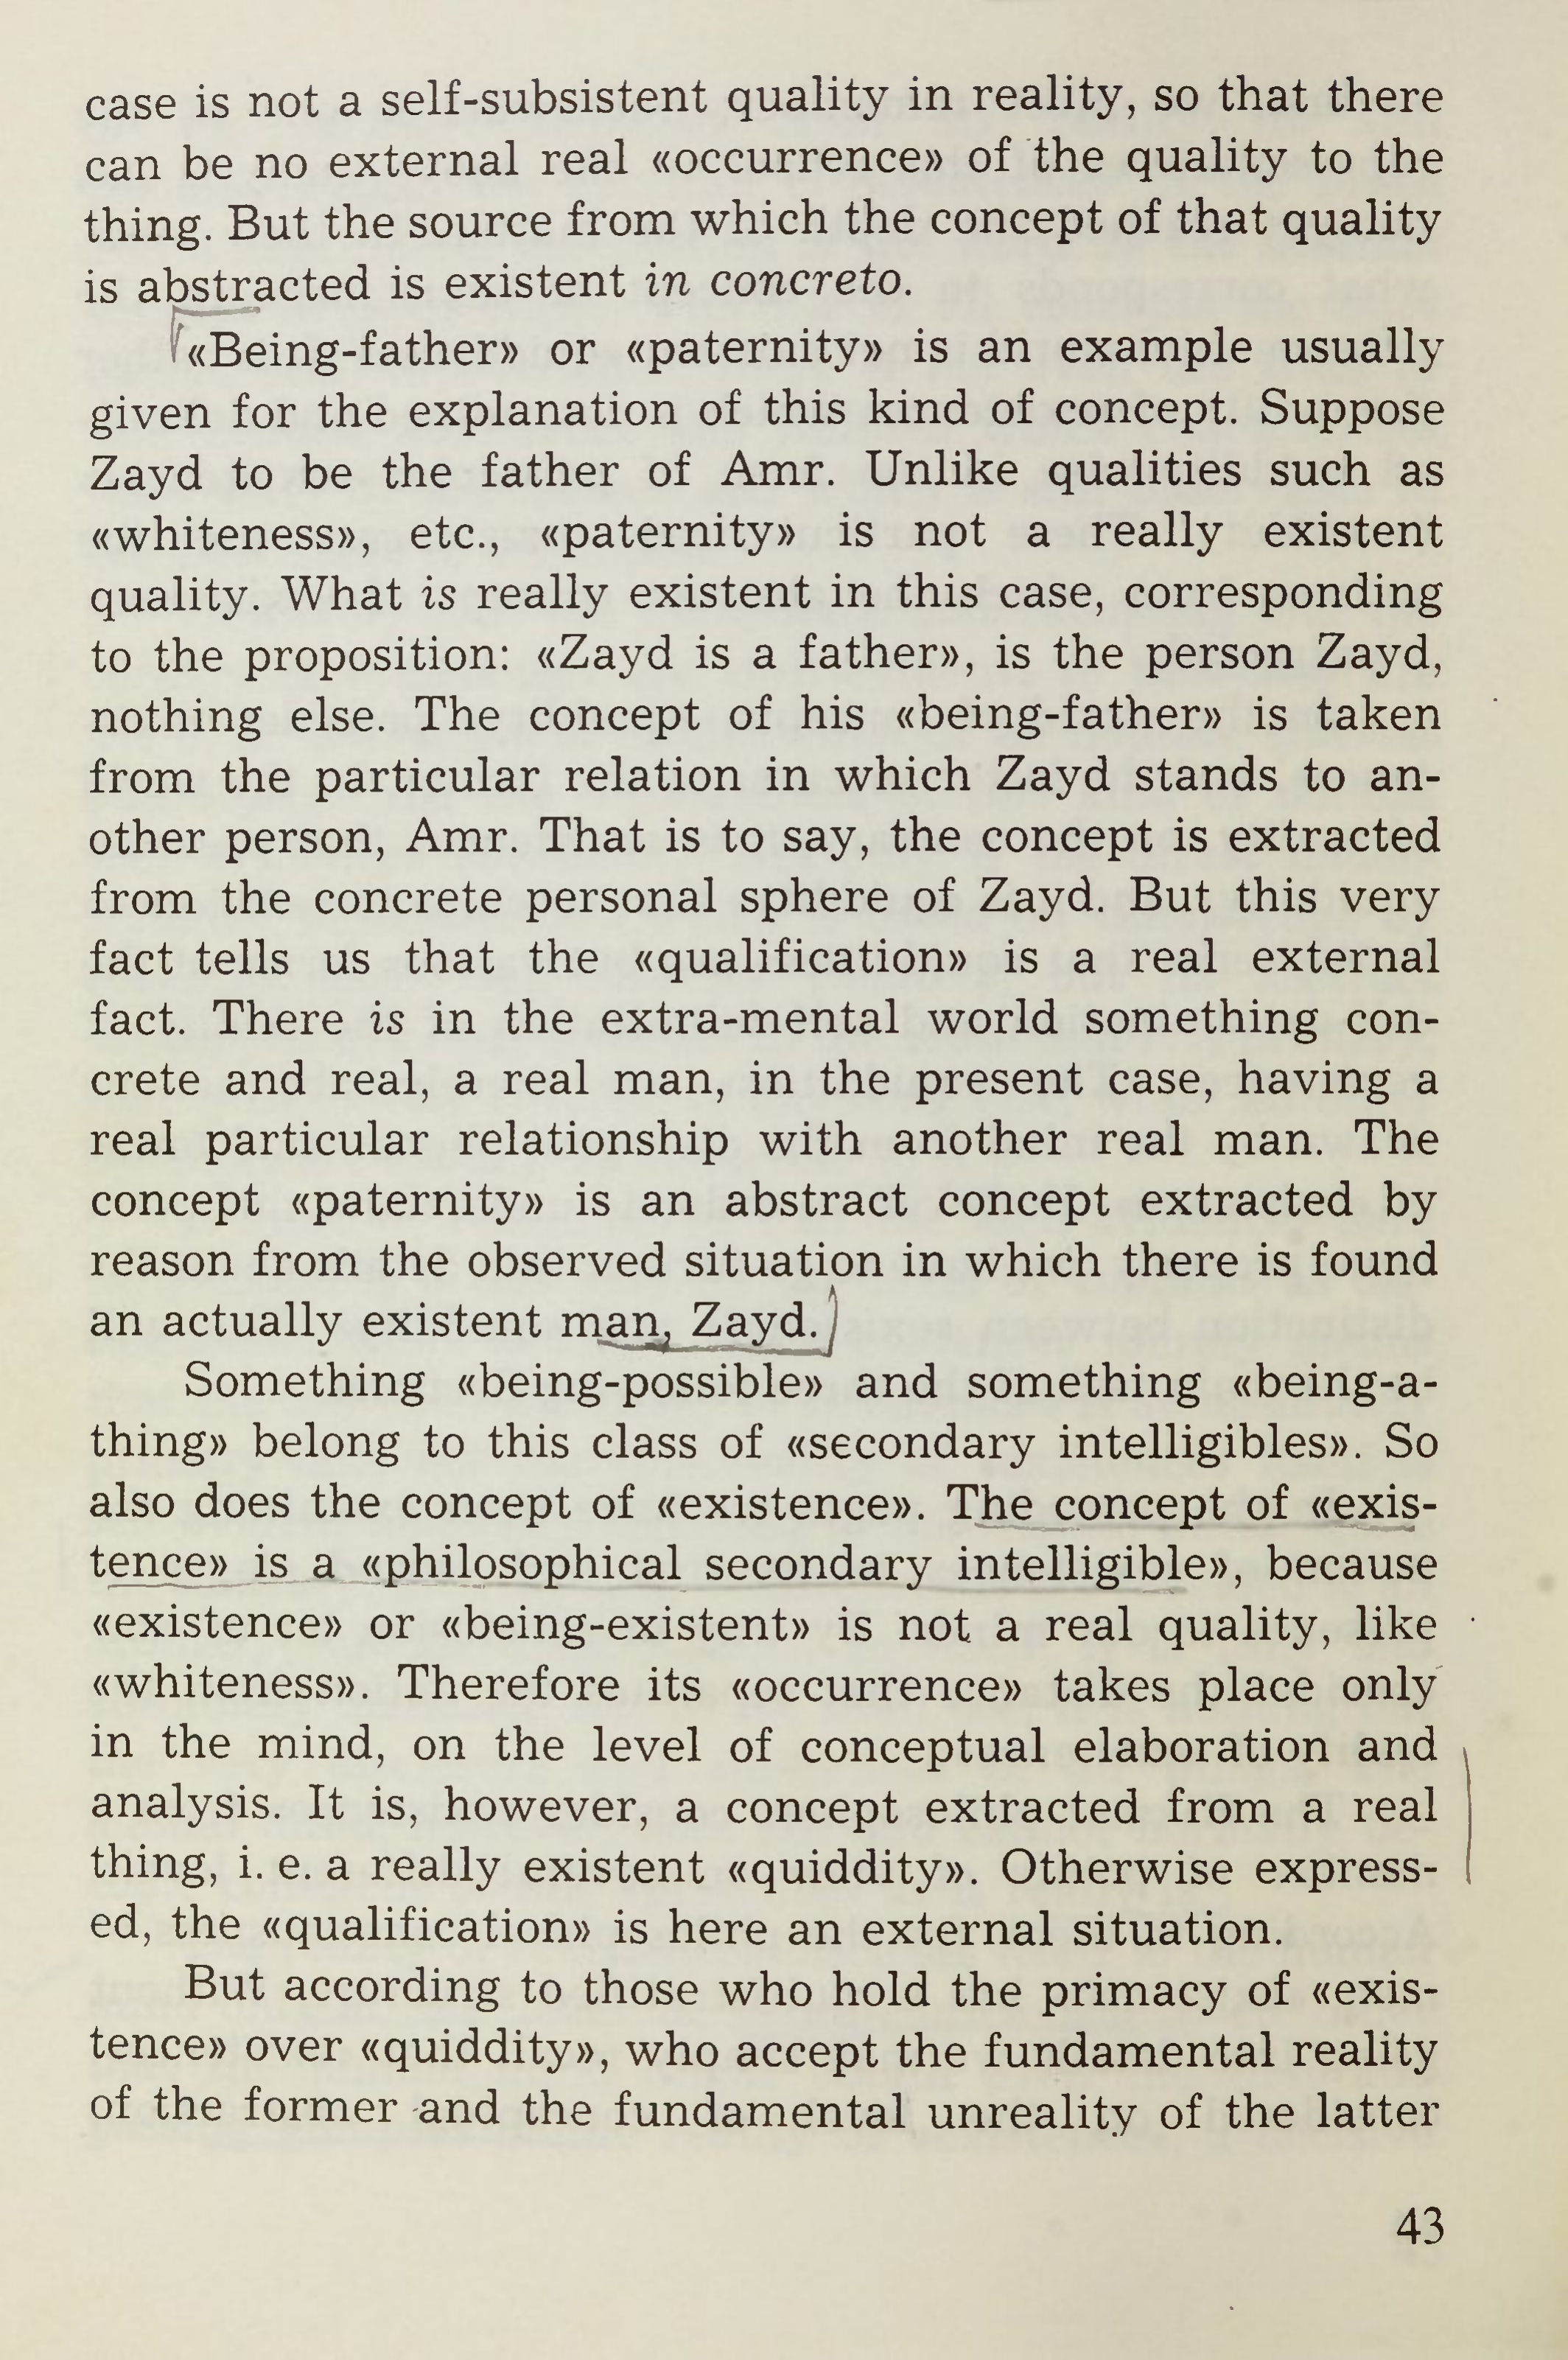 case is not a self-subsistent quality in reality, so that there
can be no external real «occurrence» of the quality to the
thing. But the source from which the concept of that quality
is abstracted is existent in concreto.
«Being-father» or «paternity» is an example usually
given for the explanation of this kind of concept. Suppose
Zayd to be the father of Amr. Unlike qualities such as
«whiteness», etc., «paternity» is not a really existent
quality. What is really existent in this case, corresponding
to the proposition: «Zayd is a father», is the person Zayd,
nothing else. The concept of his «being-father» is taken
from the particular relation in which Zayd stands to an-
other person, Amr. That is to say, the concept is extracted
from the concrete personal sphere of Zayd. But this very
fact tells us that the «qualification» is a real external
fact. There is in the extra-mental world something con-
crete and real, a real man, in the present case, having a
real particular relationship with another real man. The
concept «paternity» is an abstract concept extracted by
reason from the observed situation in which there is found
an actually existent man, Zayd.
Something «being-possible» and something «being-a-
thing» belong to this class of «secondary intelligibles». So
also does the concept of «existence». The concept of «exis-
tence» is a «philosophical secondary intelligible», because
«existence» or «being-existent» is not a real quality, like
«whiteness». Therefore its «occurrence» takes place only
in the mind, on the level of conceptual elaboration and
analysis. It is, however, a concept extracted from a real
thing, i. e. a really existent «quiddity». Otherwise express-
ed, the «qualification» is here an external situation.
But according to those who hold the primacy of «exis-
tence» over «quiddity», who accept the fundamental reality
of the former and the fundamental unreality of the latter
43